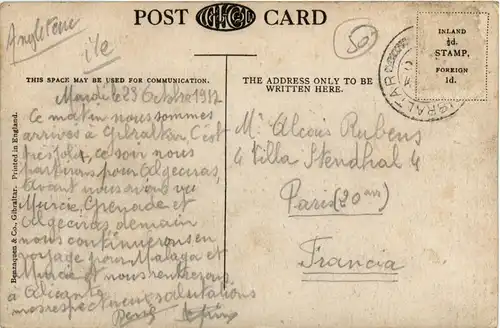 Angleterre
ile
POST CARD
50
INLAND
½d.
STAMP,
FOREIGN
1d.
GIBRALTAR
THIS SPACE MAY BE USED FOR COMMUNICATION.
THE ADDRESS ONLY TO BE
WRITTEN HERE.
Mardi le 23 Octobre 1912
Ce matin nous sommes
arrivés à Gibraltar C'est
très joli, ce soir nous
partirons pour Algeciras,
avant nous avons vu
Murcie, Grenade et
Algeciras, demain
nous continuerons en
voyage pour Malaga et
Murcie et nous rentrerons
à Alicante
nos respectueuses salutations
René
Mr Alcais Rubens
4 Villa Stendhal 4
Paris (20me)
Francia
Beanzaquen & Co., Gibraltar. Printed in England.